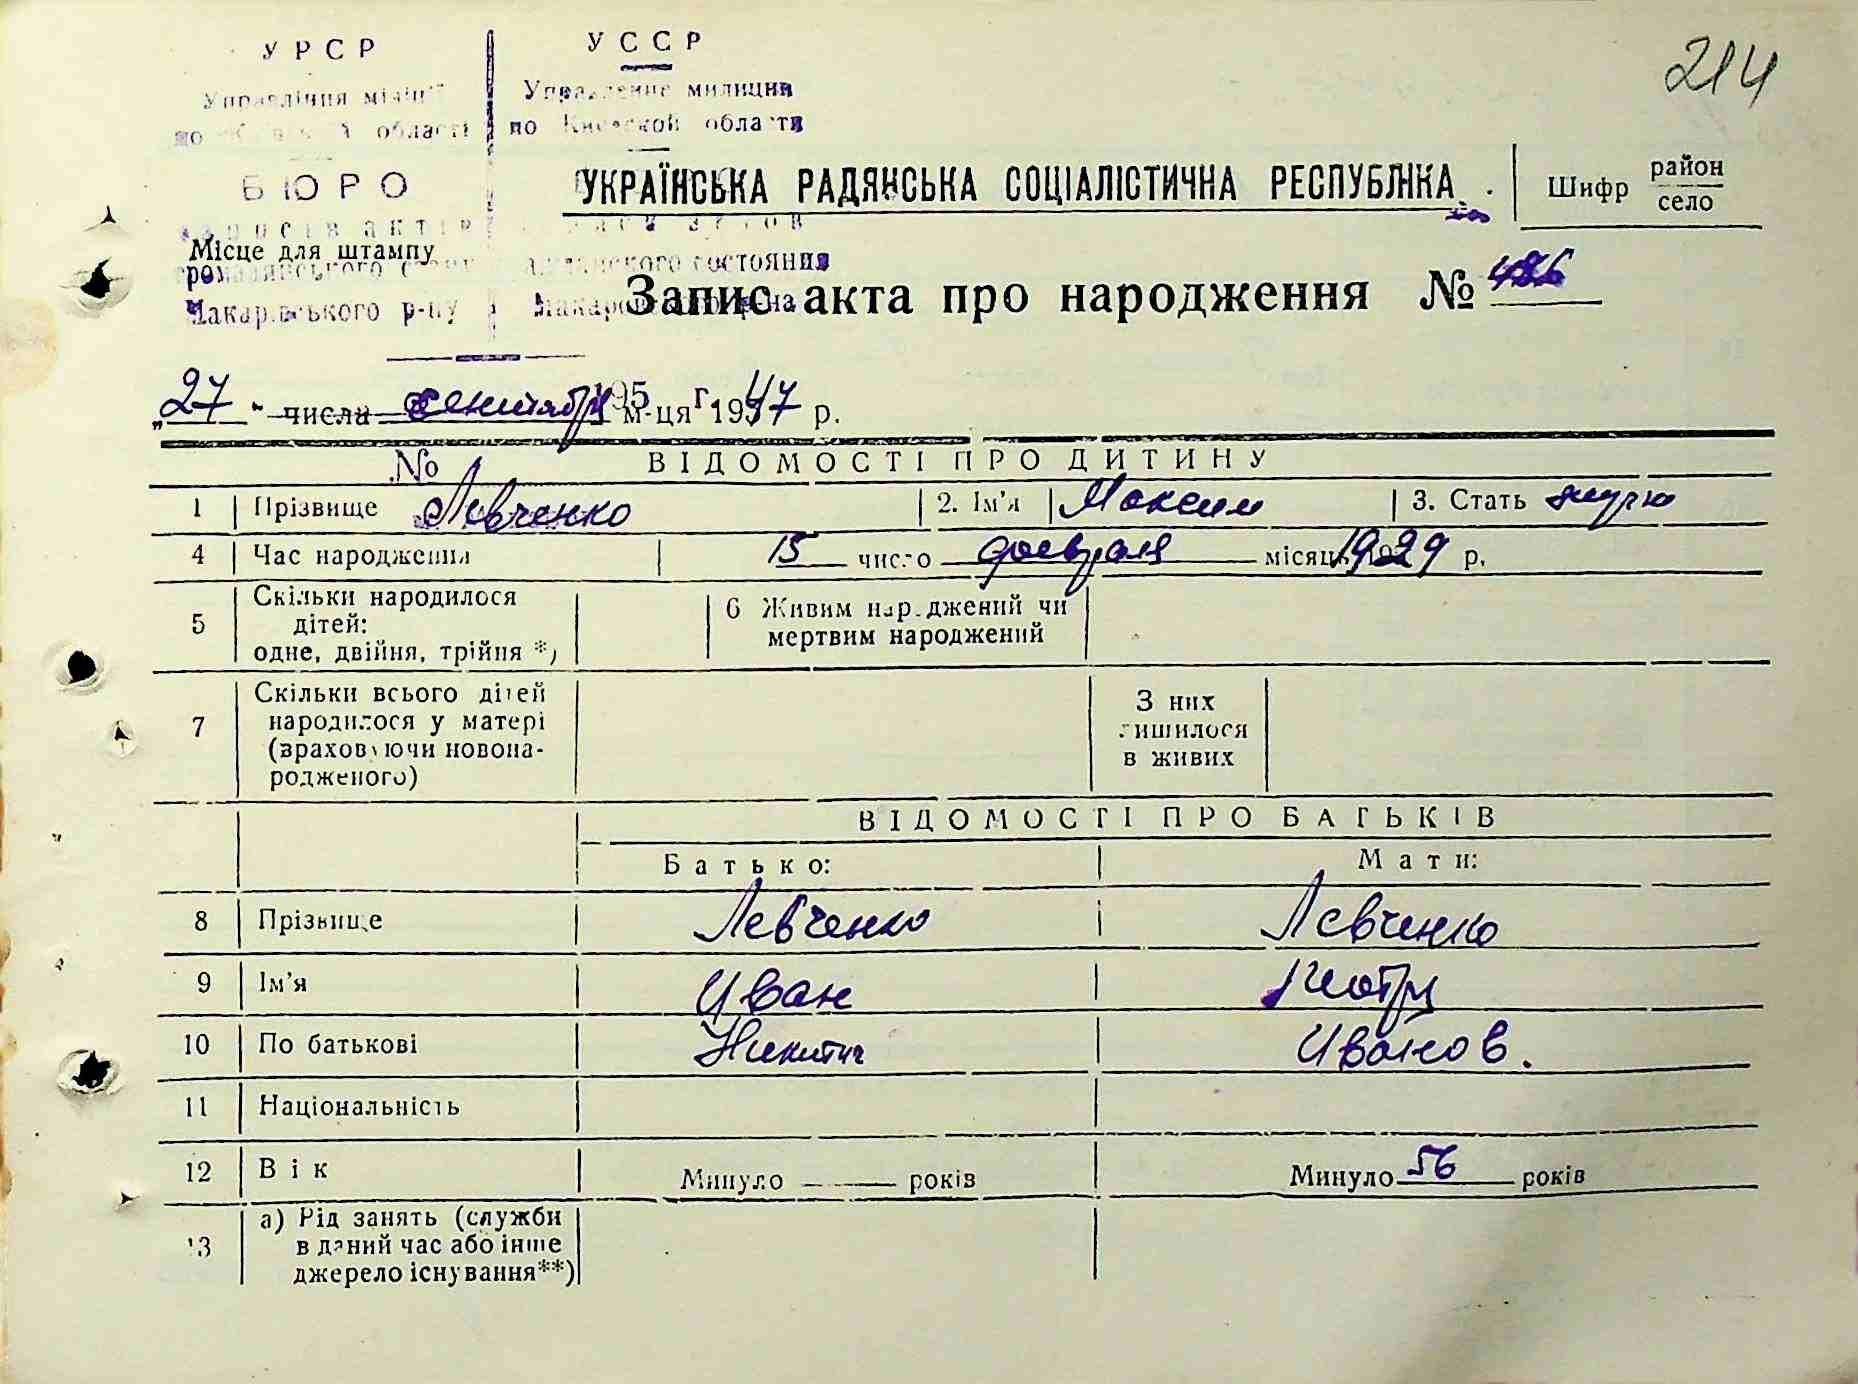 214
УРСР
Управління міліції
по Київській області
БЮРО
записів актів
громадянського стану
Макарівського р-ну
УССР
Управление милиции
по Киевской области
гражданского состояния
Макаровского р-на
УКРАЇНСЬКА РАДЯНСЬКА СОЦІАЛІСТИЧНА РЕСПУБЛІКА
Шифр район
село
Місце для штампу
Запис акта про народження №
„27" числа сентября м-ця 1947 р.
195 г.
№
ВІДОМОСТІ ПРО ДИТИНУ
1 Прізвище Левченко 2. Ім'я Максим 3. Стать мужск
4 Час народження 15 число февраля місяць 1929 р.
5 Скільки народилося
дітей:
одне, двійня, трійня *)
6 Живим народжений чи
мертвим народжений
7 Скільки всього дітей
народилося у матері
(враховуючи новона-
родженого)
З них
лишилося
в живих
ВІДОМОСТІ ПРО БАТЬКІВ
Батько: Мати:
8 Прізвище Левченко Левченко
9 Ім'я Иван
10 По батькові Никитич Иванов.
11 Національність
12 Вік Минуло років Минуло 56 років
13 а) Рід занять (служби
в даний час або інше
джерело існування**)